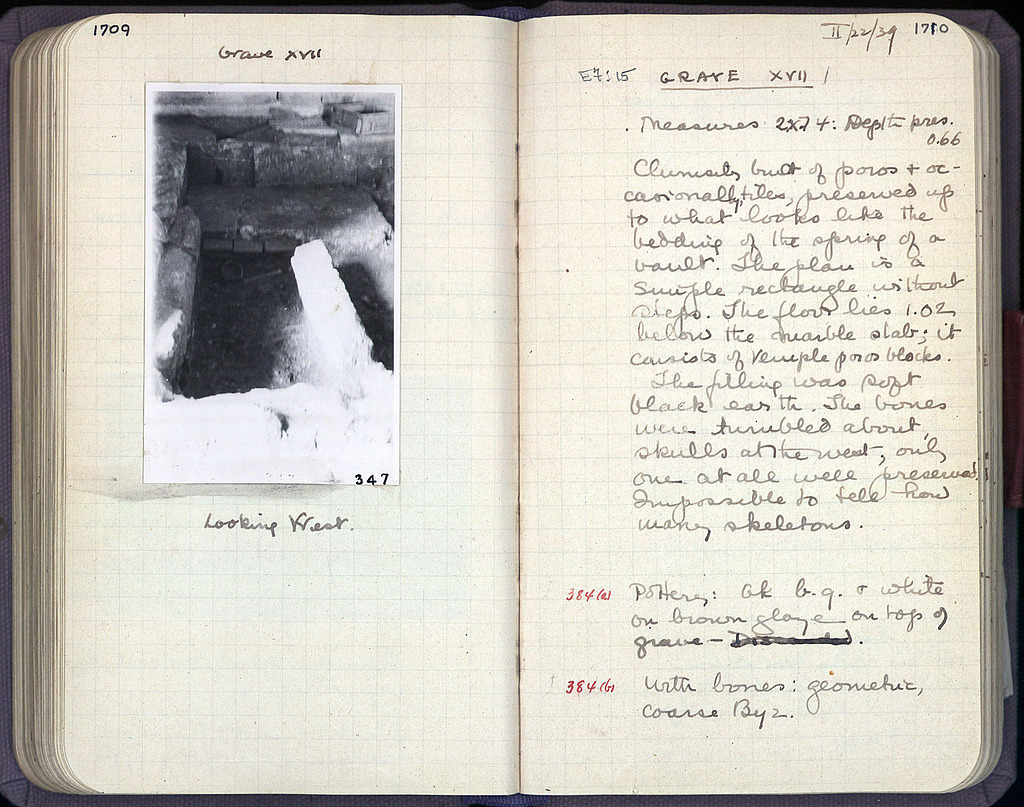 1709
Grave XVII
347
Looking West.
II/22/39 1710
E7:15 GRAVE XVII
Measures 2x.74: Depth pres.
0.66
Clumsily built of poros + oc-
casionally tiles, preserved up
to what looks like the
bedding of the spring of a
vault. The plan is a
simple rectangle without
steps. The floor lies 1.02
below the marble slab; it
consists of temple poros blocks.
The filling was soft
black earth. The bones
were tumbled about,
skulls at the west, only
one at all well preserved.
Impossible to tell how
many skeletons.
384(a) Pottery: Gk b.g. + white
on brown glaze on top of
grave –
384(b) With bones: geometric,
coarse Byz.